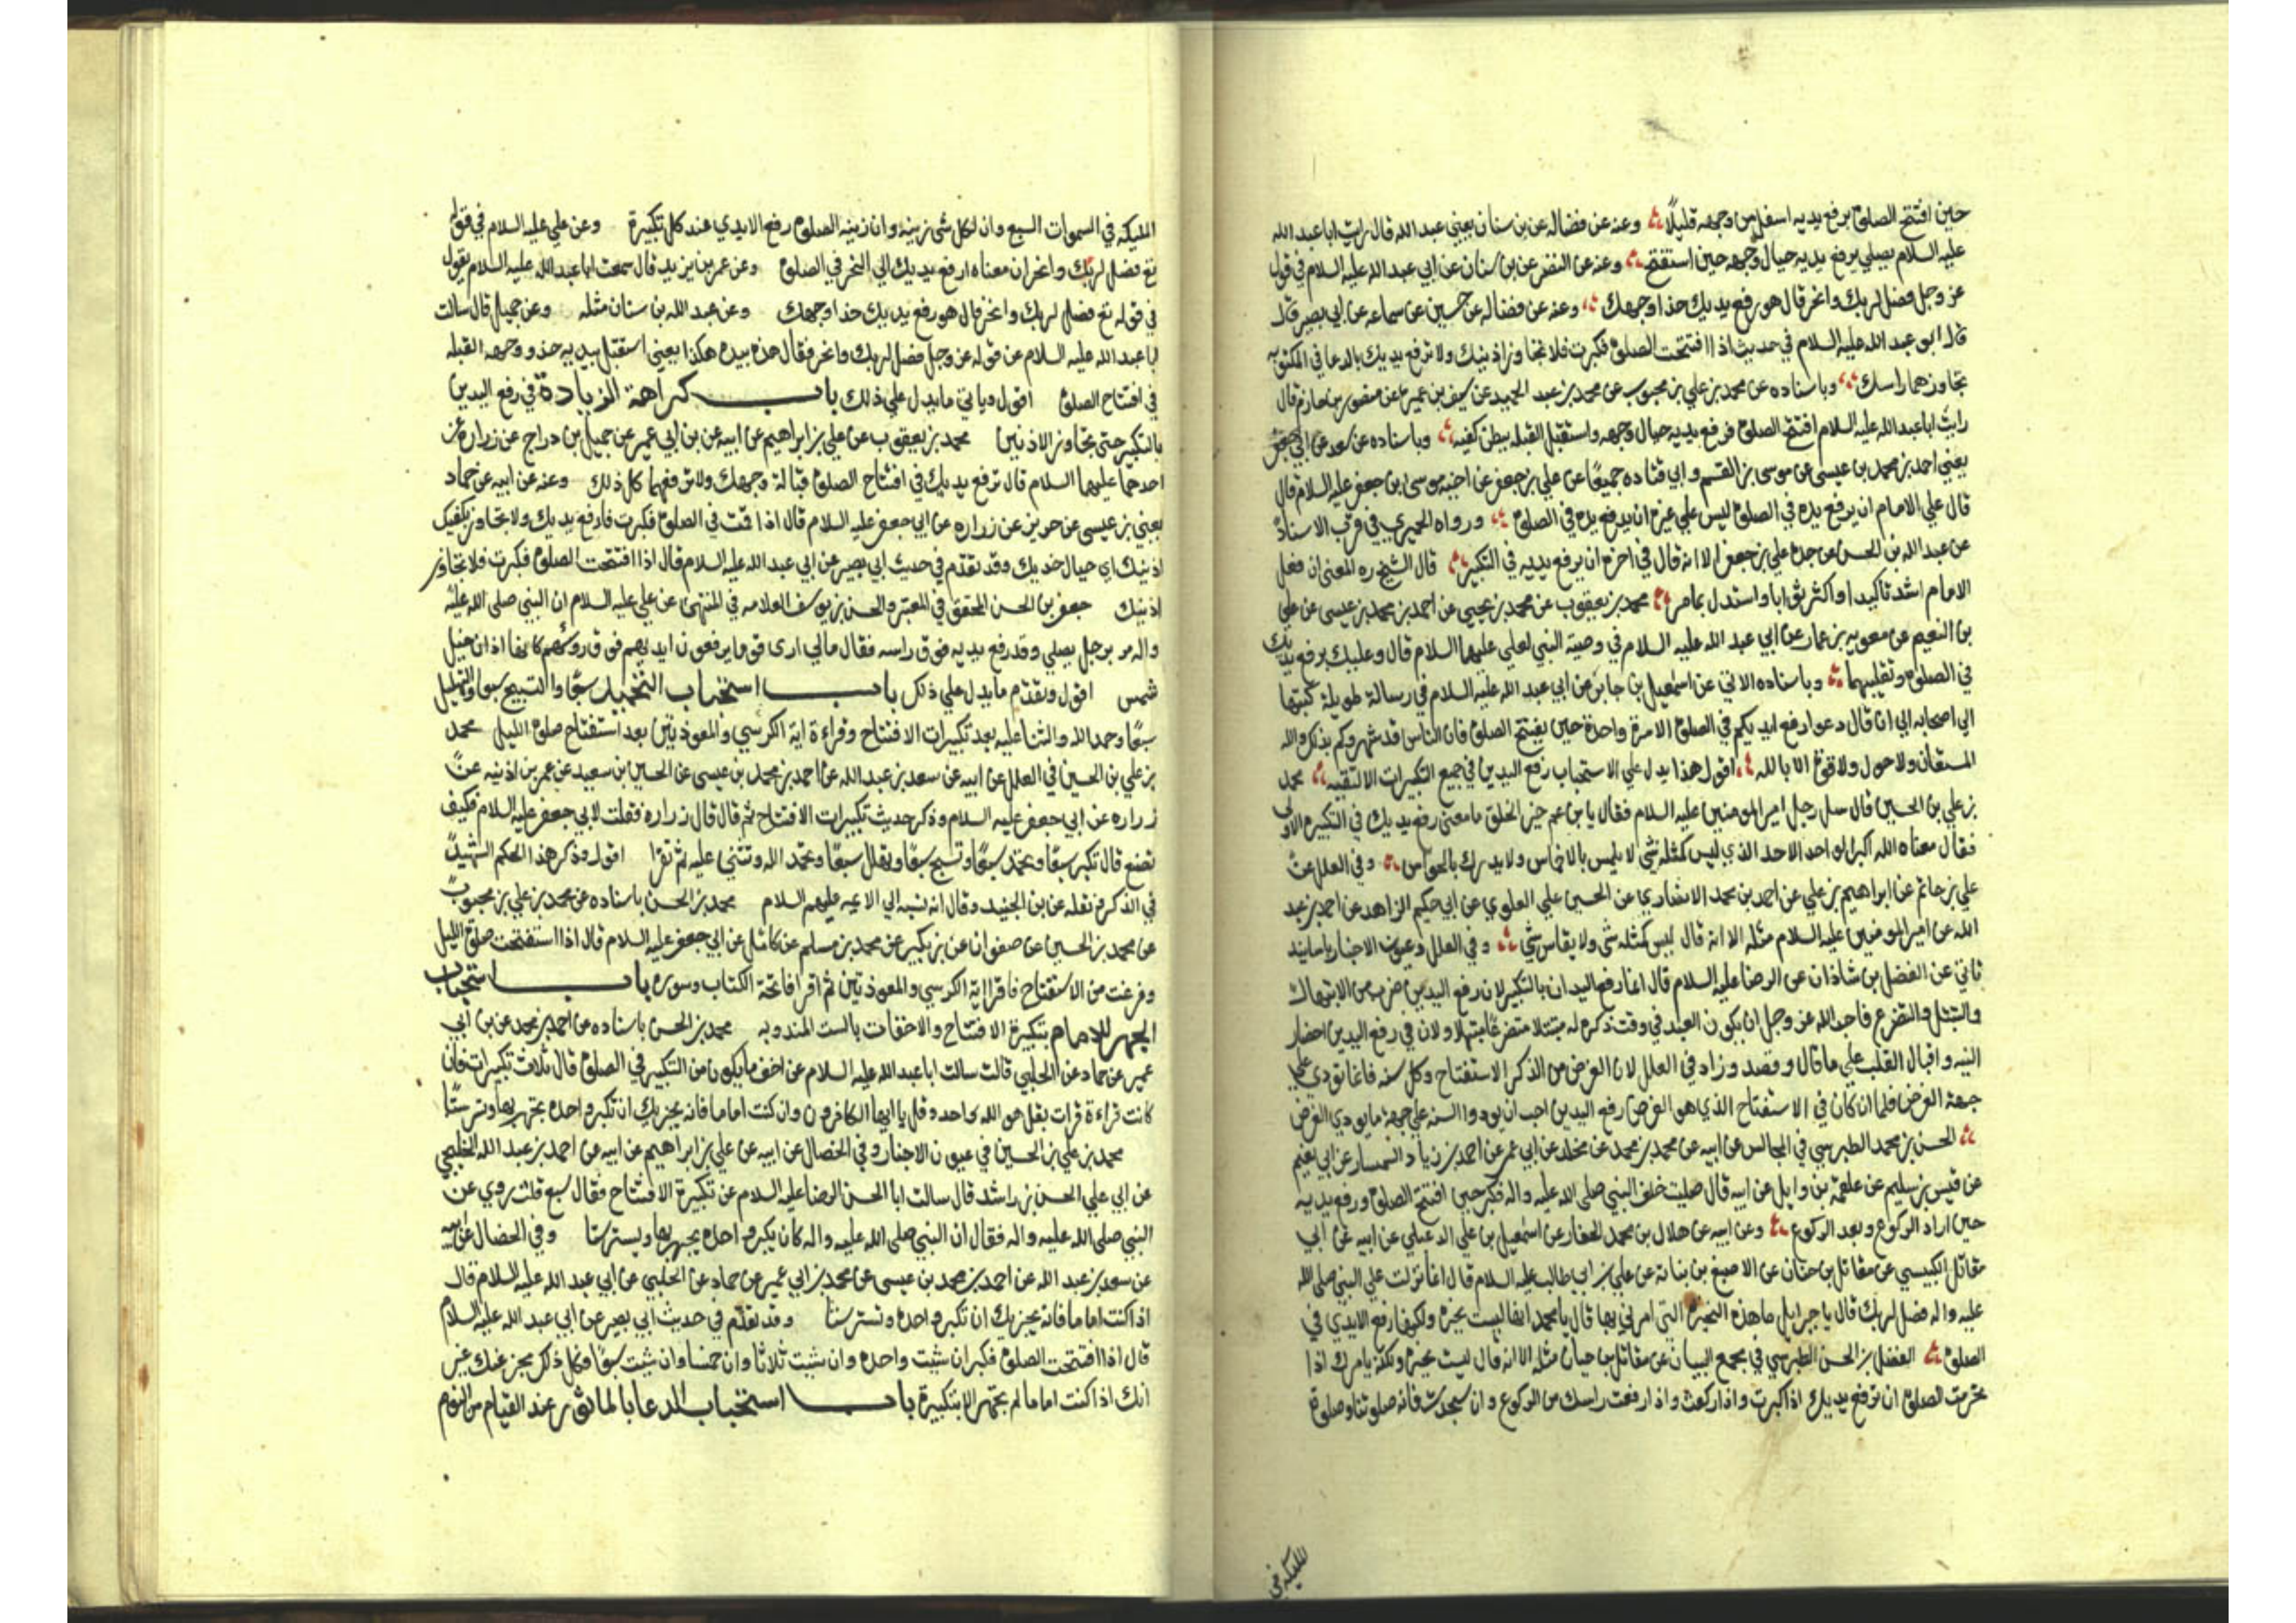 حين افتتح الصلوة يرفع يديه اسفل من وجهه قليلًا وعنه عن فضاله عن بن سنان يعني عبد الله قال رايت ابا عبد الله
عليه السلام يصلي يرفع يديه حيال وجهه حين استفتح وعنه عن النضر عن بن سنان عن ابي عبد الله عليه السلام في قول
عز وجل فصل لربك وانحر قال هو رفع يديك حذا وجهك وعنه عن فضاله عن حسين عن سماعه عن ابي بصير قال
قال ابو عبد الله عليه السلام في حديث اذا افتتحت الصلوة فكبرت فلا تجاوز اذنيك ولا ترفع يديك بالدعا في المكتوبه
تجاوز بهما راسك وباسناده عن محمد بن علي بن محبوب عن محمد بن عبد الحميد عن سيف بن عميره عن منصور بن حازم قال
رايت ابا عبد الله عليه السلام افتتح الصلوة فرفع يديه حيال وجهه واستقبل القبله ببطن كفيه وباسناده عن سعد عن ابي جعفر
يعني احمد بن محمد بن عيسى عن موسى بن القسم وابي قتاده جميعًا عن علي بن جعفر عن اخيه موسى بن جعفر عليه السلام قال
قال علي الامام ان يرفع يده في الصلوة ليس علي غيره ان يرفع يده في الصلوة ورواه الحميري في قرب الاسناد
عن عبد الله بن الحسن عن جده علي بن جعفر الا انه قال في اخره ان يرفع يديه في التكبير قال الشيخ ره المعنى ان فعل
الامام اشد تاكيدا واكثر ثوابا واستدل بما مر محمد بن يعقوب عن محمد بن يحيي عن احمد بن محمد بن عيسى عن علي
بن النعيم عن معويه بن عمار عن ابي عبد الله عليه السلام في وصية النبي لعلي عليهما السلام قال وعليك برفع يديك
في الصلوة وتقليبهما وباسناده الاتي عن اسمعيل بن جابر عن ابي عبد الله عليه السلام في رسالة طويلة كتبها
الي اصحابه الي ان قال دعوا رفع ايديكم في الصلوة الا مرة واحدة حين يفتتح الصلوة فان الناس قد شهروكم بذلك والله
المستعان ولا حول ولا قوة الا بالله اقول هذا يدل علي الاستحباب رفع اليدين في جميع التكبيرات الا لتقيه محمد
بن علي بن الحسين قال سل رجل امير المومنين عليه السلام فقال يا بن عم خير الخلق ما معنى رفع يديك في التكبيره الاولى
فقال معناه الله اكبر الواحد الاحد الذي ليس كمثله شي لا يلمس بالاخماس ولا يدرك بالحواس وفي العلل عن
علي بن حاتم عن ابراهيم بن علي عن احمد بن محمد الانصاري عن الحسين علي العلوي عن ابي حكيم الزاهد عن احمد بن عبد
الله عن امير المومنين عليه السلام مثله الا انه قال ليس كمثله شى ولا يقاس بشي وفي العلل وعيون الاخبار باسانيد
تاتي عن الفضل بن شاذان عن الرضا عليه السلام قال انما رفع اليدان بالتكبير لان رفع اليدين ضرب من الابتهال
والتبتل والتضرع فاحب الله عز وجل ان يكون العبد في وقت ذكره له متبتلا متضرعًا مبتهلا ولان في رفع اليدين احضار
النيه واقبال القلب علي ما قال وقصد وزاد في العلل لان الغرض من الذكر الاستفتاح وكل سنه فانما تودي علي
جهة الفرض فلما ان كان في الاستفتاح الذي هو الفرض رفع اليدين احب ان يودوا السنه علي جهة ما يودي الفرض
الحسن بن محمد الطبرسي في المجالس عن ابيه عن محمد بن محمد عن مخلد عن ابي عمر عن احمد بن زياد السمسار عن ابي نعيم
عن قيس بن سليم عن علقمة بن وايل عن ابيه قال صليت خلف النبي صلي الله عليه واله فكبر حين افتتح الصلوة ورفع يديه
حين اراد الركوع وبعد الركوع وعن ابيه عن هلال بن محمد الحفار عن اسمعيل بن علي الدعبلي عن ابيه عن ابي
مقاتل الكيسي عن مقاتل بن حنان عن الاصبغ بن نباتة عن علي بن ابي طالب عليه السلام قال لما نزلت علي النبي صلى الله
عليه واله فصل لربك قال يا جبرايل ما هذه النحيرة التي امرني بها قال يا محمد انها ليست نحيره ولكنها رفع الايدي في
الصلوة الفضل بن الحسن الطبرسي في مجمع البيان عن مقاتل بن حيان مثله الا انه قال ليست نحيره ولكنه يامرك اذا
تحرمت الصلوة ان ترفع يديك اذا كبرت واذا ركعت واذا رفعت راسك من الركوع وان سجدت فانه صلوتنا وصلوة
المليكه في
المليكه في السموات السبع وان لكل شى زينه وان زينه الصلوة رفع الايدي عند كل تكبيرة وعن علي عليه السلام في قوله
تع فصل لربك وانحر ان معناه ارفع يديك الي النحر في الصلوة وعن عمر بن يزيد قال سمعت ابا عبد الله عليه السلام يقول
في قوله تع فصل لربك وانحر قال هو رفع يديك حذا وجهك وعن عبد الله بن سنان مثله وعن جميل قال سالت
ابا عبد الله عليه السلام عن قوله عز وجل فصل لربك وانحر فقال هذه بيده هكذا يعني استقبل بيديه حذو وجهه القبله
في افتتاح الصلوة اقول وياتي ما يدل علي ذلك باب كراهة الزيادة في رفع اليدين
بالتكبير حتى تجاوز الاذنين محمد بن يعقوب عن علي بن ابراهيم عن ابيه عن بن ابي عمير عن جميل بن دراج عن زراره عن
احدهما عليهما السلام قال ترفع يديك في افتتاح الصلوة قبالة وجهك ولا ترفعهما كل ذلك وعنه عن ابيه عن حماد
يعني بن عيسى عن حريز عن زراره عن ابي جعفر عليه السلام قال اذا قمت في الصلوة فكبرت فارفع يديك ولا تجاوز بكفيك
اذنيك اي حيال خديك وقد تقدم في حديث ابي بصير عن ابي عبد الله عليه السلام قال اذا افتتحت الصلوة فكبرت فلا تجاوز
اذنيك جعفر بن الحسن المحقق في المعتبر والحسن بن يوسف العلامه في المنتهى عن علي عليه السلام ان النبي صلى الله عليه
واله مر برجل يصلي وقد رفع يديه فوق راسه فقال مالي ارى قوما يرفعون ايديهم فوق روسهم كانها اذان خيل
شمس اقول وتقدم ما يدل علي ذلك باب استحباب التحميد سبعًا والتسبيح سبعا والتهليل
سبعًا وحمد الله والثنا عليه بعد تكبيرات الافتتاح وقراءة اية الكرسي والمعوذتين بعد استفتاح صلوة الليل محمد
بن علي بن الحسين في العلل عن ابيه عن سعد بن عبد الله عن احمد بن محمد بن عيسى عن الحسين بن سعيد عن عمر بن اذنيه عن
زراره عن ابي جعفر عليه السلام وذكر حديث تكبيرات الافتتاح ثم قال قال زراره فقلت لابي جعفر عليه السلام فكيف
نصنع قال تكبر سبعًا وتحمد سبعًا وتسبح سبعًا وتهلل سبعًا وتحمد الله وتثني عليه ثم تقرا اقول وذكر هذا الحكم الشهيد
في الذكرى نقله عن بن الجنيد وقال انه نسبه الي الايمه عليهم السلام محمد بن الحسن باسناده عن محمد بن علي بن محبوب
عن محمد بن الحسين عن صفوان عن بن بكير عن محمد بن مسلم عن كامل عن ابي جعفر عليه السلام قال اذا استفتحت صلوة الليل
وفرغت من الاستفتاح فاقرا اية الكرسي والمعوذتين ثم اقرا فاتحة الكتاب وسوره باب استحباب
الجهر للامام بتكبيرة الافتتاح والاخفات بالست المندوبه محمد بن الحسن باسناده عن احمد بن محمد عن بن ابي
عمير عن حماد عن الحلبي قالت سالت ابا عبد الله عليه السلام عن اخف ما يكون من التكبير في الصلوة قال ثلاث تكبيرات فان
كانت قراءة قرات بقل هو الله واحد وقل يا ايها الكافرون وان كنت اماما فانه يجزيك ان تكبر واحده تجهر بها وتسر ستًا
محمد بن علي بن الحسين في عيون الاخبار وفي الخصال عن ابيه عن علي بن ابراهيم عن ابيه عن احمد بن عبد الله الخليجي
عن ابي علي الحسن بن راشد قال سالت ابا الحسن الرضا عليه السلام عن تكبيرة الافتتاح فقال سبع قلت روي عن
النبي صلى الله عليه واله فقال ان النبي صلى الله عليه واله كان يكبر واحده يجهر بها ويسر ستا وفي الخصال عن ابيه
عن سعد بن عبد الله عن احمد بن محمد بن عيسى عن محمد بن ابي عمير عن حماد عن الحلبي عن ابي عبد الله عليه السلام قال
اذا كنت اماما فانه يجزيك ان تكبر واحده وتسر ستا وقد تقدم في حديث ابي بصير عن ابي عبد الله عليه السلام
قال اذا افتتحت الصلوة فكبر ان شيت واحده وان شيت ثلاثا وان خمسا وان شيت سبعًا وكل ذلك مجز عنك غير
انك اذا كنت اماما لم تجهر الا بتكبيرة باب استحباب الدعا بالماثور عند القيام من النوم